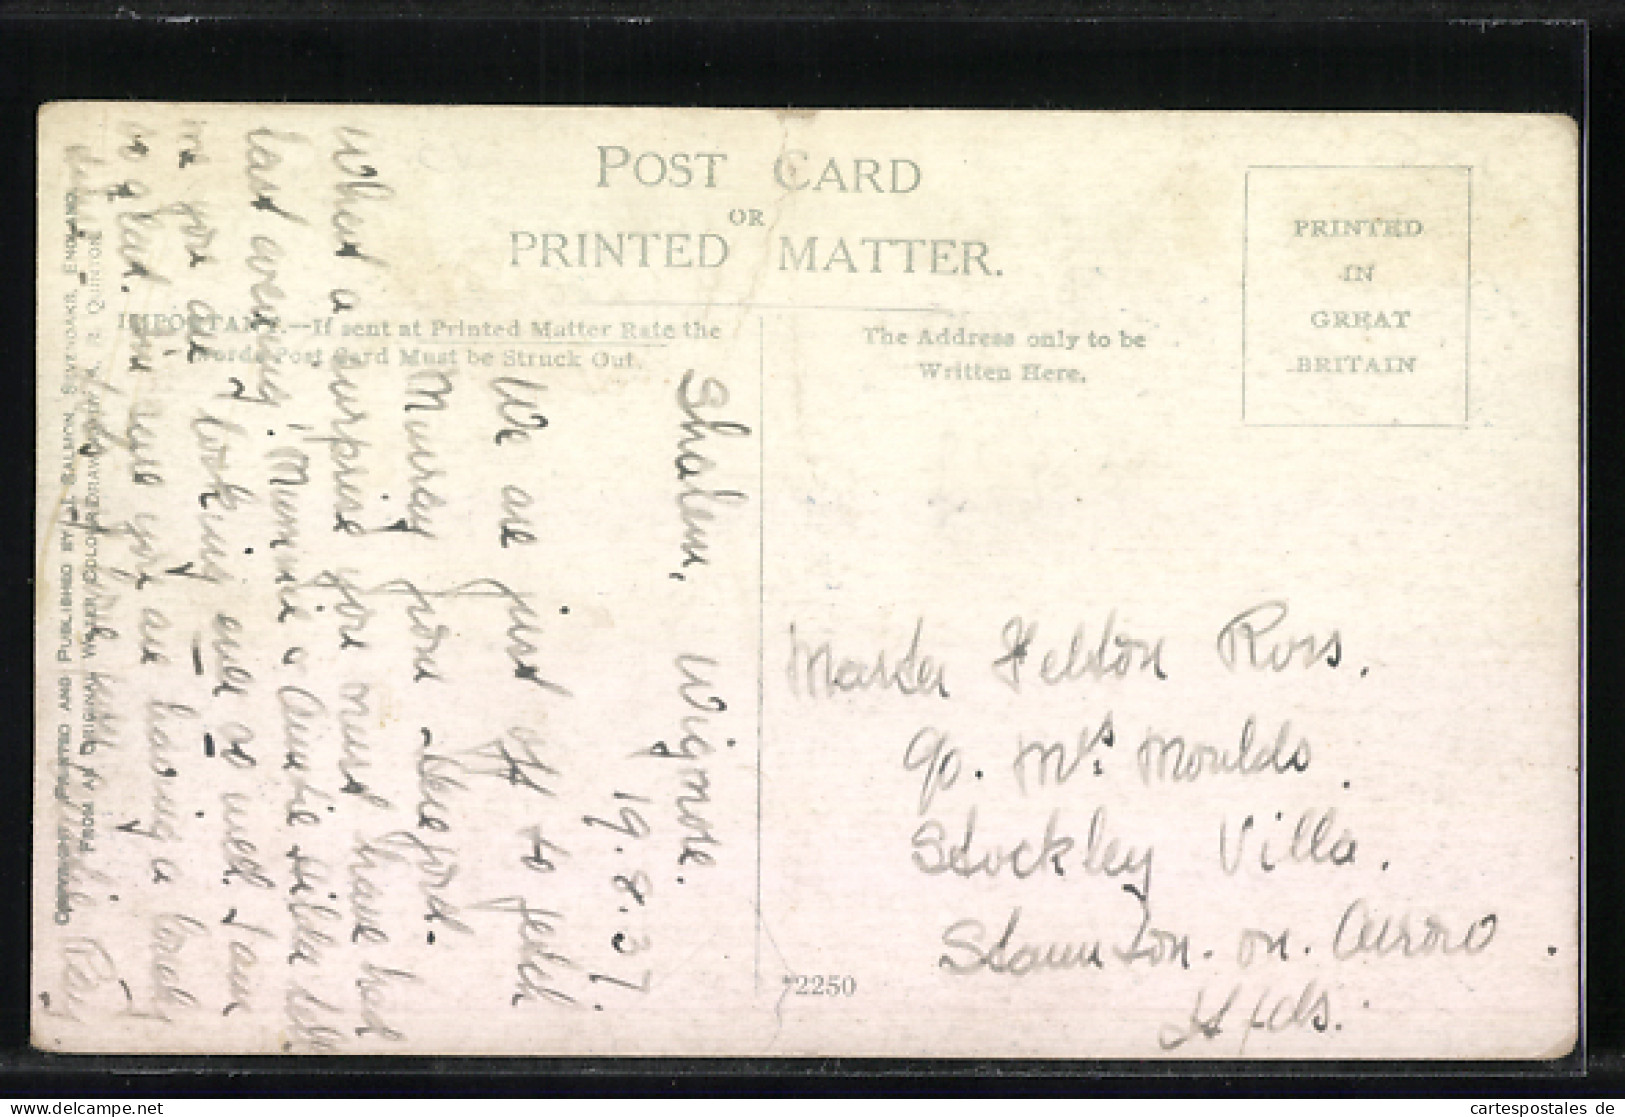 POST CARD
OR
PRINTED MATTER.
IMPORTANT.—If sent at Printed Matter Rate the
words Post Card Must be Struck Out.
The Address only to be
Written Here.
PRINTED
IN
GREAT
BRITAIN
Shalem, Wigmore.
19.8.37.
We are just off to fetch
Murray from
What a surprise you must have had
last evening! Mummie & Auntie Hilda tell
me you are looking ever so well. I am
so glad. I'm sure you are having a lovely
COPYRIGHT PRINTED AND PUBLISHED BY J. SALMON, SEVENOAKS, ENGLAND.
FROM AN ORIGINAL WATER COLOUR DRAWING BY A. R. QUINTON
Master Felton Ross.
c/o. Mrs Moulds.
Stockley Villa.
Staunton. on. Arrow.
Hfds.
*2250
cartespostales de